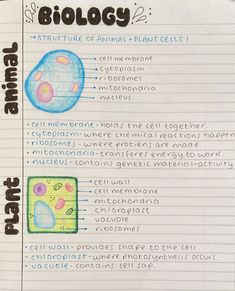 BIOLOGY
→ STRUCTURE OF ANIMAL + PLANT CELLS!
animal
cell membrane
cytoplasm
ribosomes
mitochondria
nucleus
• cell membrane - holds the cell together
• cytoplasm - where chemical reactions happen
• ribosomes - where protiens are made
• mitochondria - transferes energy to work
• nucleus - contains genetic material - activity
Plant
cell wall
cell membrane
mitochondria
chloroplast
vacuole
ribosomes
• cell wall - provides shape to the cell
• chloroplast - where photosynthesis occurs
• vacuole - contains cell sap.